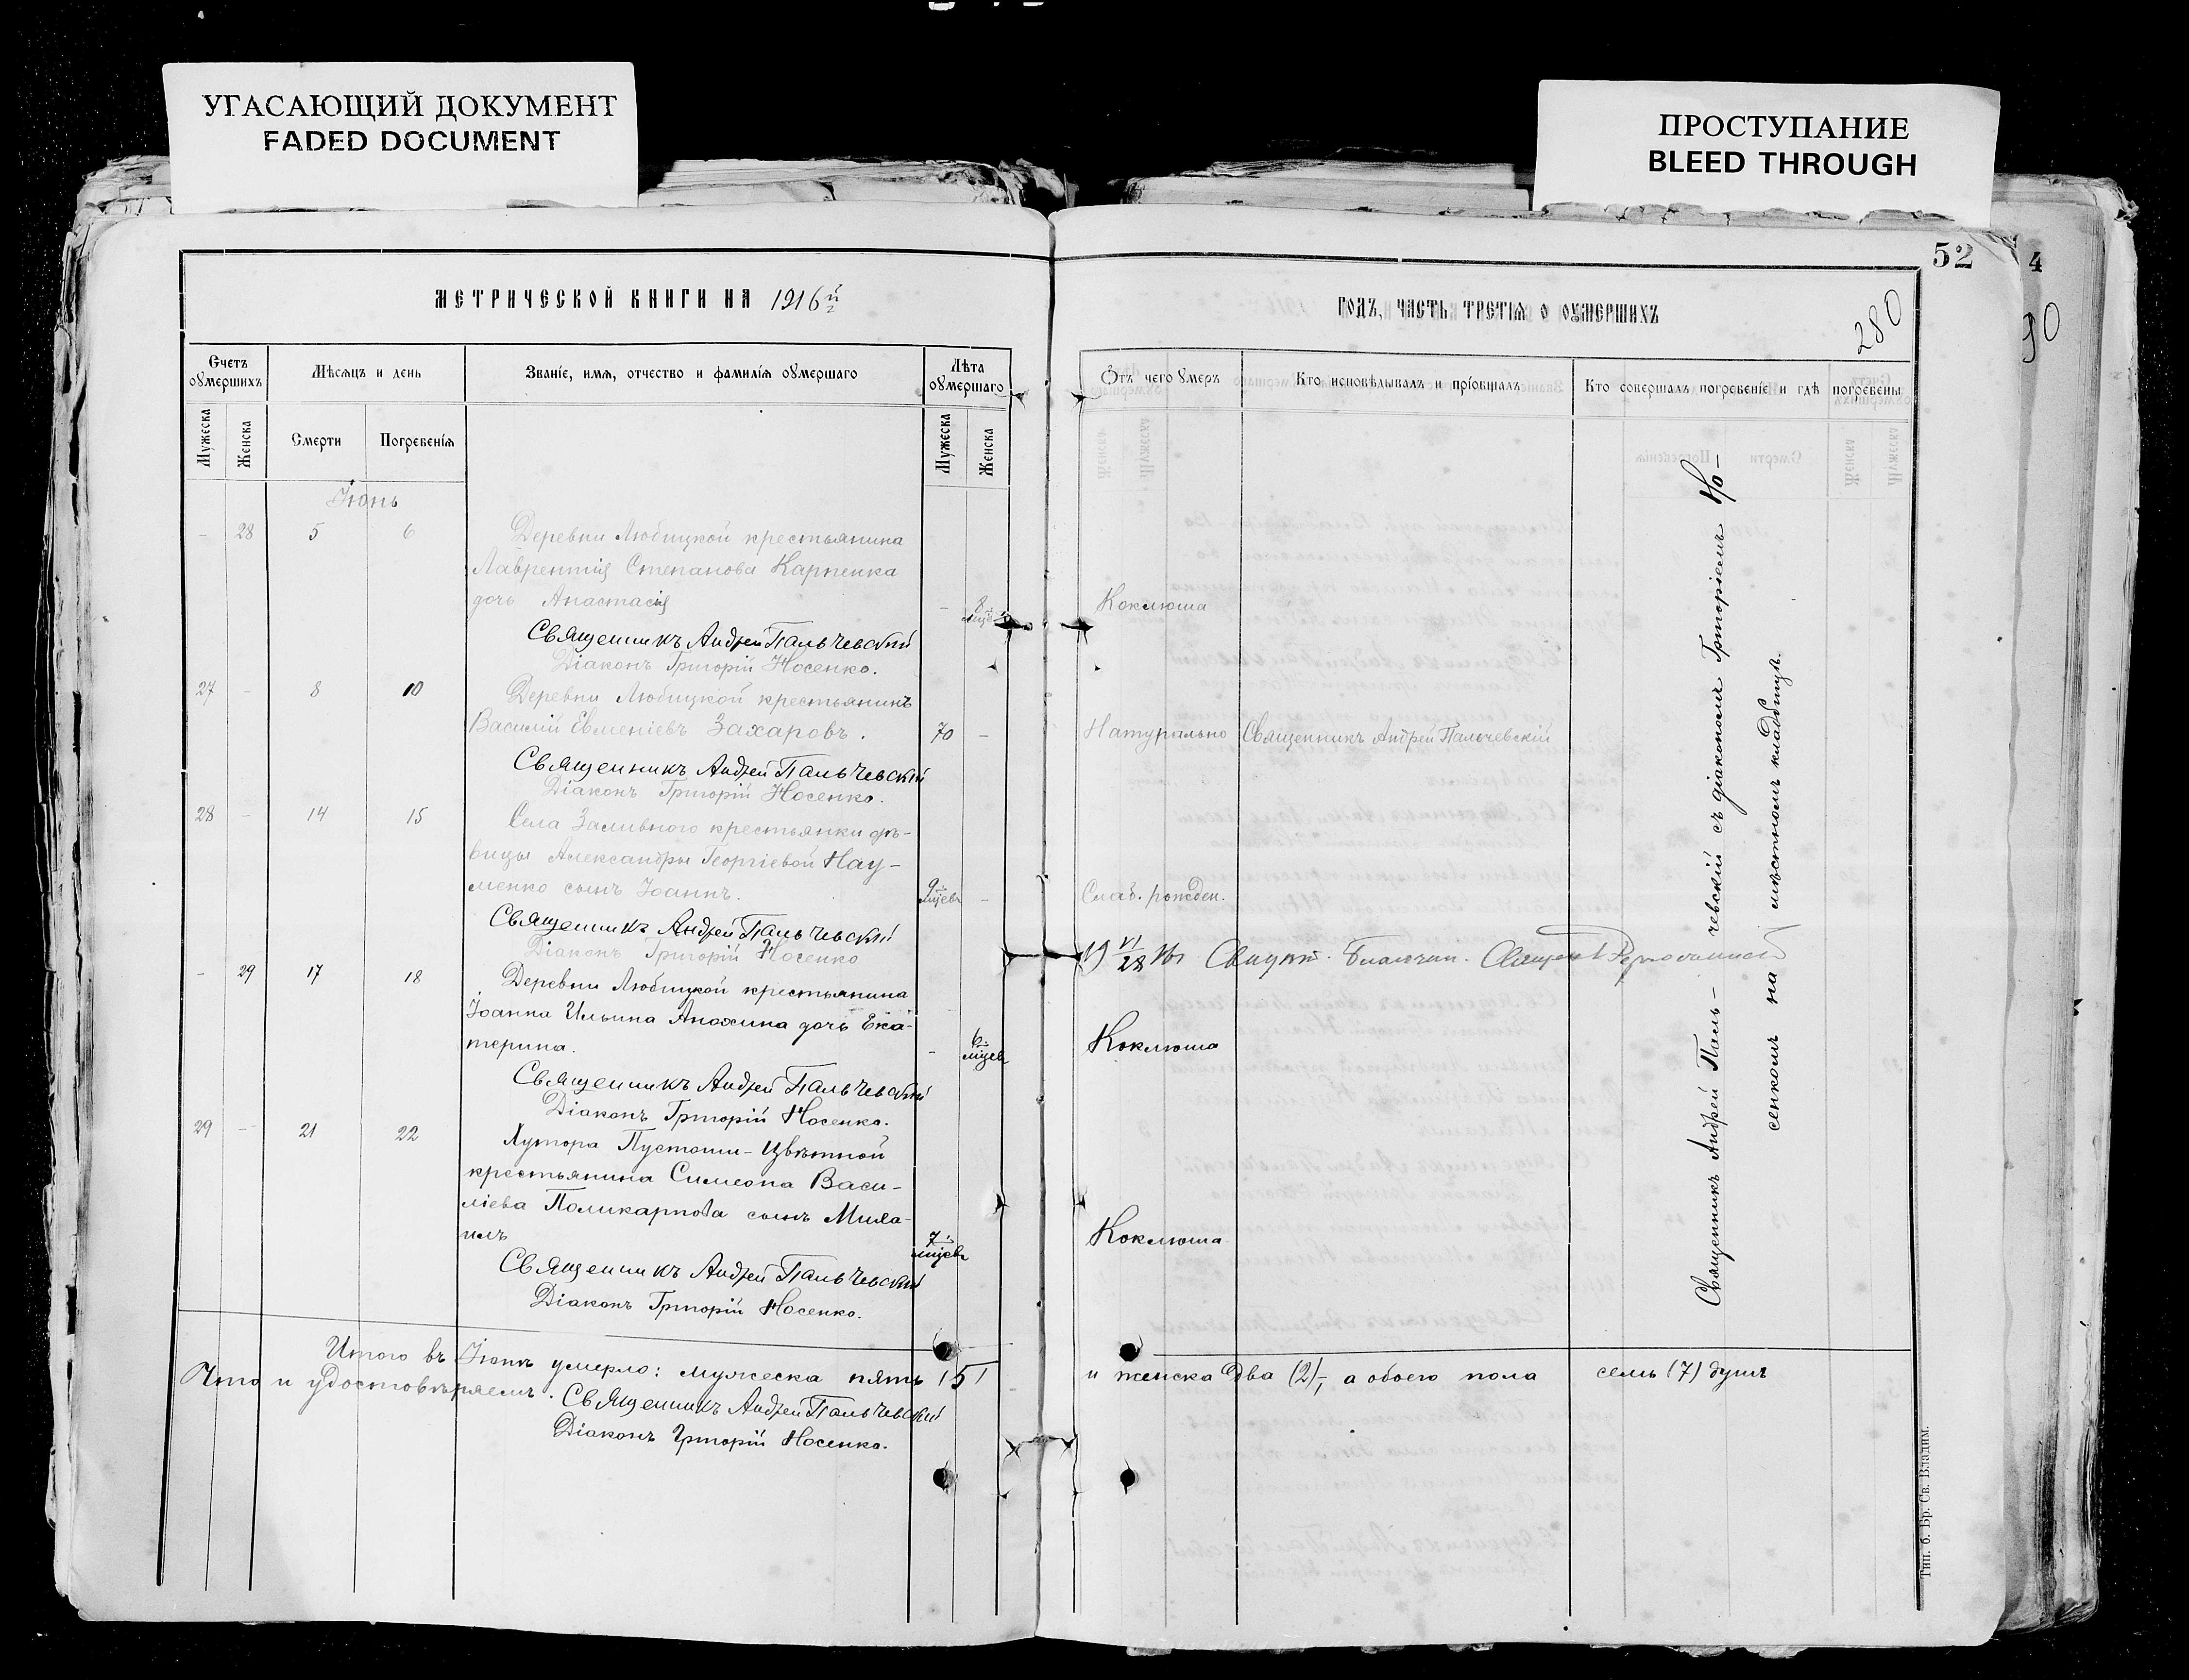 УГАСАЮЩИЙ ДОКУМЕНТ
FADED DOCUMENT
ПРОСТУПАНИЕ
BLEED THROUGH
52
4
90
280
МЕТРИЧЕСКОЙ КНИГИ НА 1916й
ГОДЪ, ЧАСТЬ ТРЕТІЯ О ОУМЕРШИХЪ
Счетъ оумершихъ
Мѣсяцъ и день
Званіе, имя, отчество и фамилія оумершаго
Лѣта оумершаго
Отъ чего умеръ
Кто исповѣдывалъ и пріобщалъ
Кто совершалъ погребеніе и гдѣ погребены
Мужеска
Женска
Смерти
Погребенія
Мужеска
Женска
Іюнь
- 28 5 6 Деревни Любицкой крестьянина
Лаврентія Степанова Карпенка
дочь Анастасія - 8 мцев Коклюша
Священникъ Андрей Пальчевскій
Діаконъ Григорій Носенко.
27 - 8 10 Деревни Любицкой крестьянинъ
Василій Евменіевъ Захаровъ. 70 - Натурально Священникъ Андрей Пальчевскій
Священникъ Андрей Пальчевскій
Діаконъ Григорій Носенко.
28 - 14 15 Села Заливного крестьянки дѣ-
вицы Александры Георгіевой Нау-
менко сынъ Іоаннъ. 9 мцевъ - Слаб. рожден.
Священникъ Андрей Пальчевскій
Діаконъ Григорій Носенко
19 VI/28 16
- 29 17 18 Деревни Любицкой крестьянина
Іоанна Ильина Анохина дочь Ека-
терина. - 6 мцев Коклюша
Священникъ Андрей Пальчевскій
Діаконъ Григорій Носенко.
29 - 21 22 Хутора Пустоши-Цвѣтной
крестьянина Симеона Васи-
ліева Поликарпова сынъ Миха-
илъ 7 мцевъ Коклюша
Священникъ Андрей Пальчевскій
Діаконъ Григорій Носенко.
Священникъ Андрей Паль-чевскій съ діакономъ Григоріемъ Но-
сенкомъ на мѣстномъ кладбищѣ.
Итого въ Іюнѣ умерло: мужеска пять (5) и женска два (2), а обоего пола семь (7) душъ
Что и удостовѣряемъ. Священникъ Андрей Пальчевскій
Діаконъ Григорій Носенко.
Тип. б. Бр. Св. Владим.